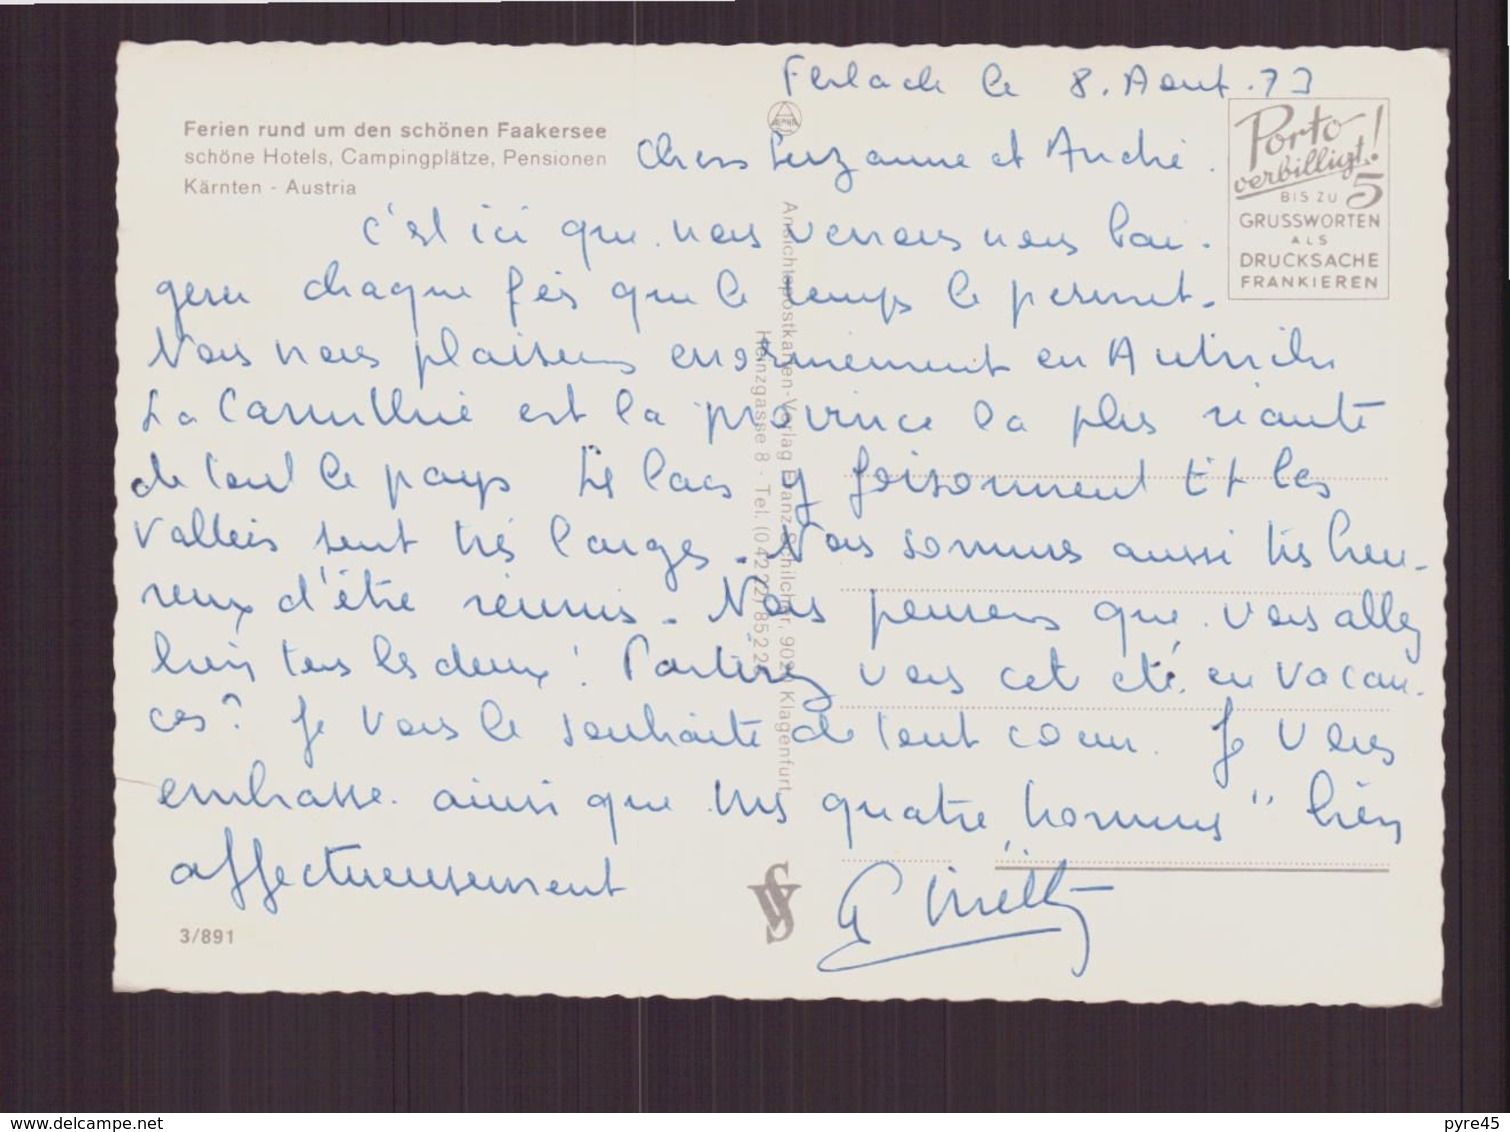 Ferlach le 8. Aout. 73
Ferien rund um den schönen Faakersee
schöne Hotels, Campingplätze, Pensionen
Kärnten - Austria
Porto
verbilligt!
BIS ZU 5
GRUSSWORTEN
ALS
DRUCKSACHE
FRANKIEREN
Chers Suzanne et André.
c'est ici que nous venons nous bai-
gner chaque fois que le temps le permet.
Nous nous plaisons enormement en Autriche
La Carinthie est la province la plus riante
de tout le pays Les lacs y foisonnent et les
Vallées sont très larges. Nous sommes aussi très heu-
reux d'être réunis. Nous pensons que vous allez
bien tous les deux! Partirez vous cet été en vacan-
ces? Je vous le souhaite de tout coeur. Je vous
embrasse ainsi que mes quatre "hommes" bien
affectueusement
Ansichtspostkarten-Verlag Franz Schilcher, 9020 Klagenfurt
Heinzgasse 8 - Tel. (04222) 8522
3/891
delcampe.net
pyre45